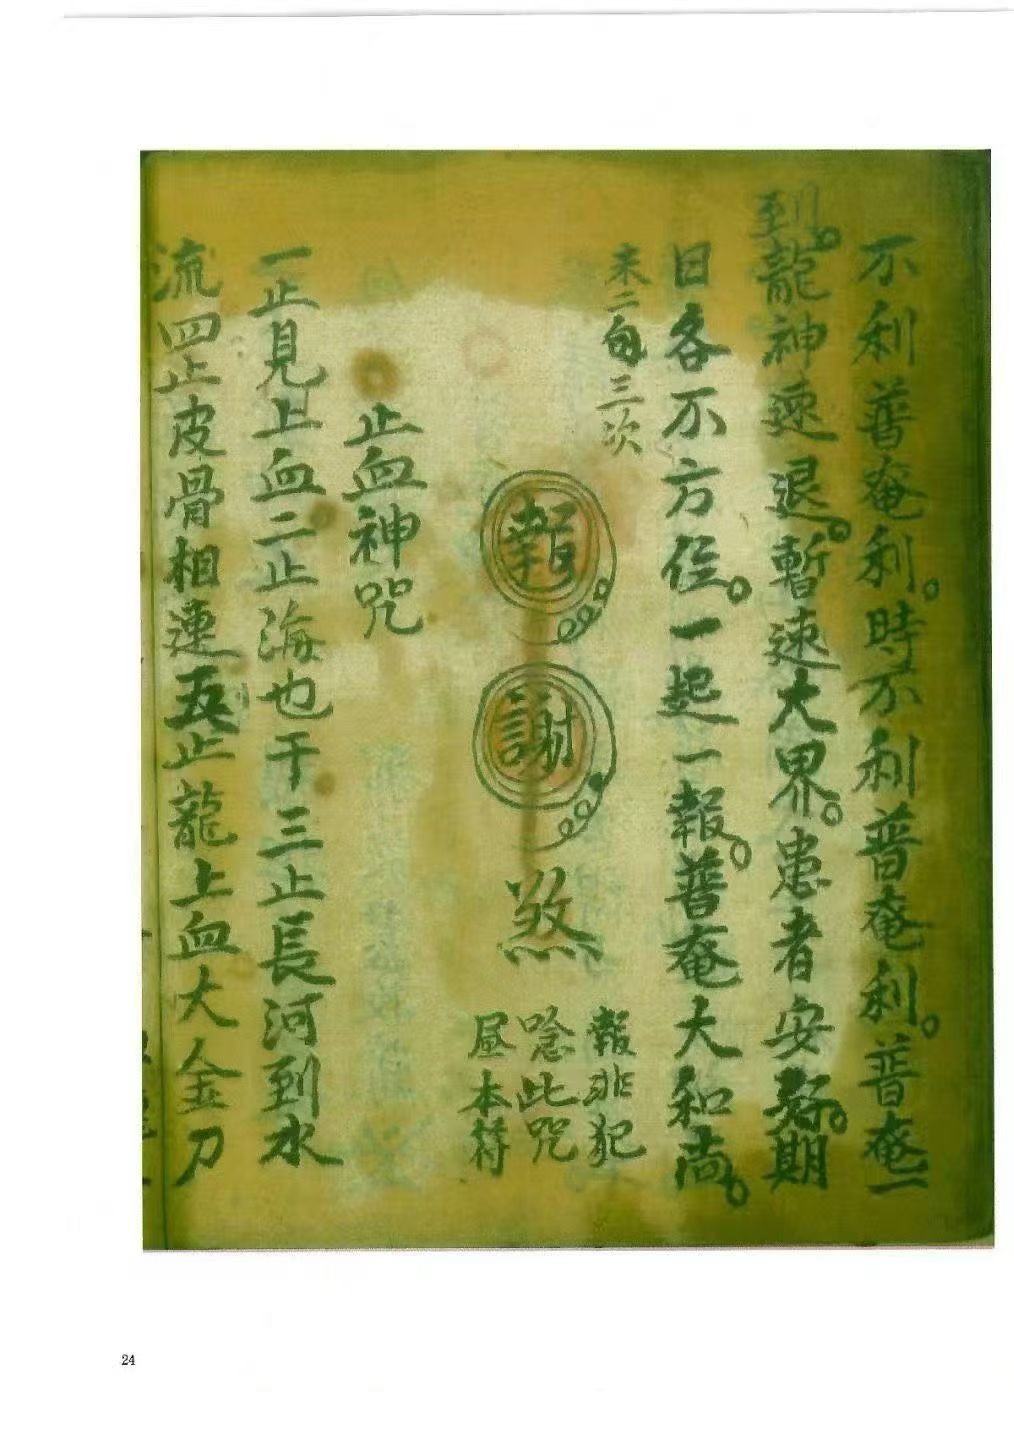 不利普庵利。時不利普庵利。普庵一
到。龍神速退。暫速大界。患者安。期
日各不方。一起一報。普庵大和尚。
末二句三次
報
謝
煞
報非犯
唸此咒
本符
止血神咒
一止見上血二止海也干三止長河到水
流四止皮骨相連五止龍上血大金刀
24